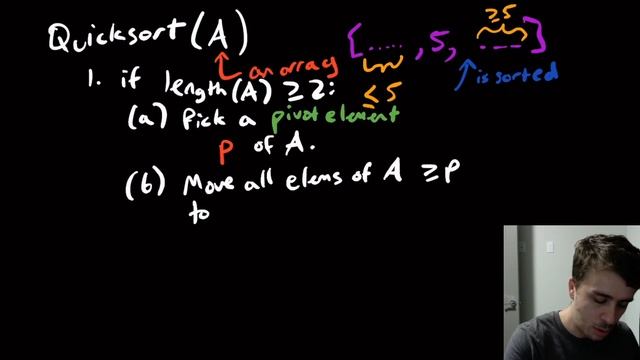 Quicksort(A)
an array
[....., 5, ----]
≥5
≤5
is sorted
1. if length(A) ≥ 2:
(a) Pick a pivot element
p of A.
(b) Move all elems of A ≥p
to